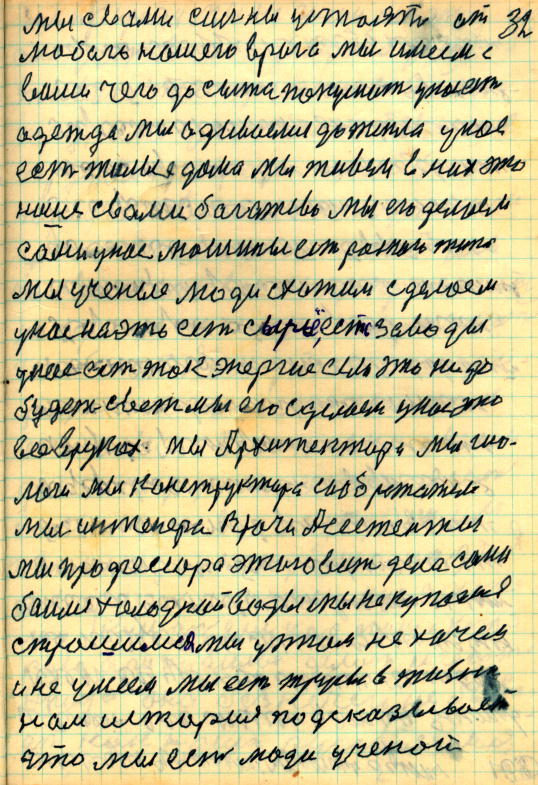 мы свами сильны устоять от 32
любого нашего врага мы имеем с
вами чего до сыта покушат унас ест
одежда мы одиваемся до тепла унас
ест жилые дома мы живем в них это
наше свами багатево мы его делаем
сами унас машины ест разного типа
мы ученые люди схотим сделаем
унас наэто ест сырьё, ест заводы
унас ест ток энергие если это надо
будет свет мы его сделаем унас это
всевруках. мы Архитектора мы гио-
логи мы конструктора соображаем
мы инженера Врачи Асестенты
мы професора этого вот дела сами
боимся холоднай воды мы не купаемся
строшимся мы у этом не хочем
и не умеем мы ест труры в жизни
нам история подсказывает
что мы ест люди ученой